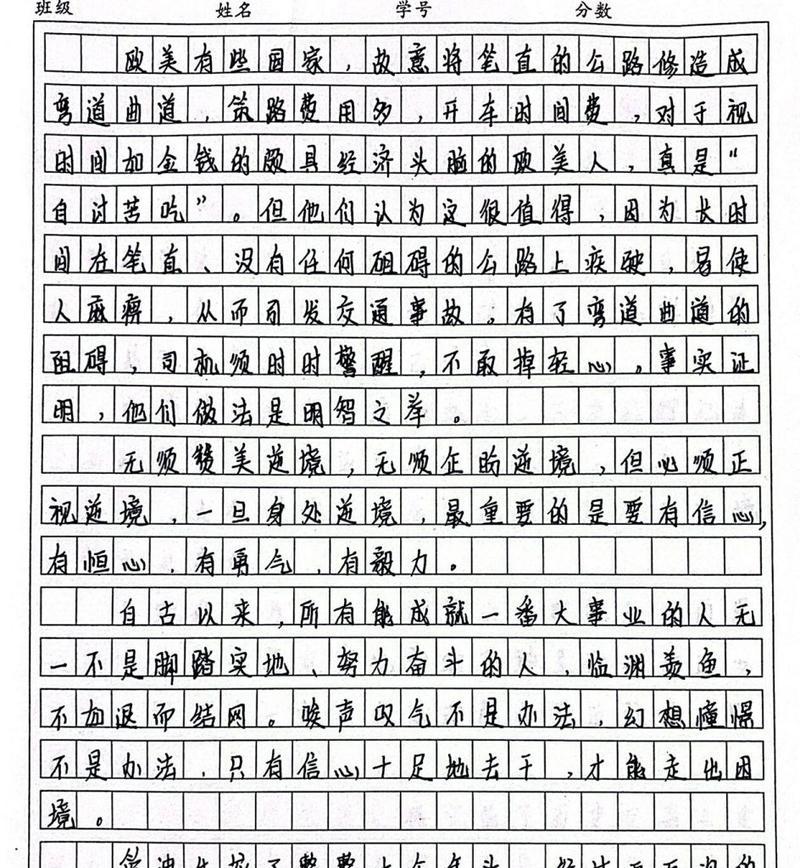 班级 姓名 学号 分数
欧美有些国家，故意将笔直的公路修造成
弯道曲道，筑路费用多，开车时间费，对于视
时间如金钱的颇具经济头脑的欧美人，真是“
自讨苦吃”。但他们认为这很值得，因为长时
间在笔直、没有任何阻碍的公路上疾驶，易使
人麻痹，从而引发交通事故。有了弯道曲道的
阻碍，司机须时时警醒，不敢掉轻心。事实证
明，他们做法是明智之举。
无须赞美逆境，无须企盼逆境，但必须正
视逆境，一旦身处逆境，最重要的是要有信心，
有恒心，有勇气，有毅力。
自古以来，所有能成就一番大事业的人无
一不是脚踏实地、努力奋斗的人，临渊羡鱼，
不如退而结网。唉声叹气不是办法，幻想憧憬
不是办法，只有信心十足地去干，才能走出困
境。